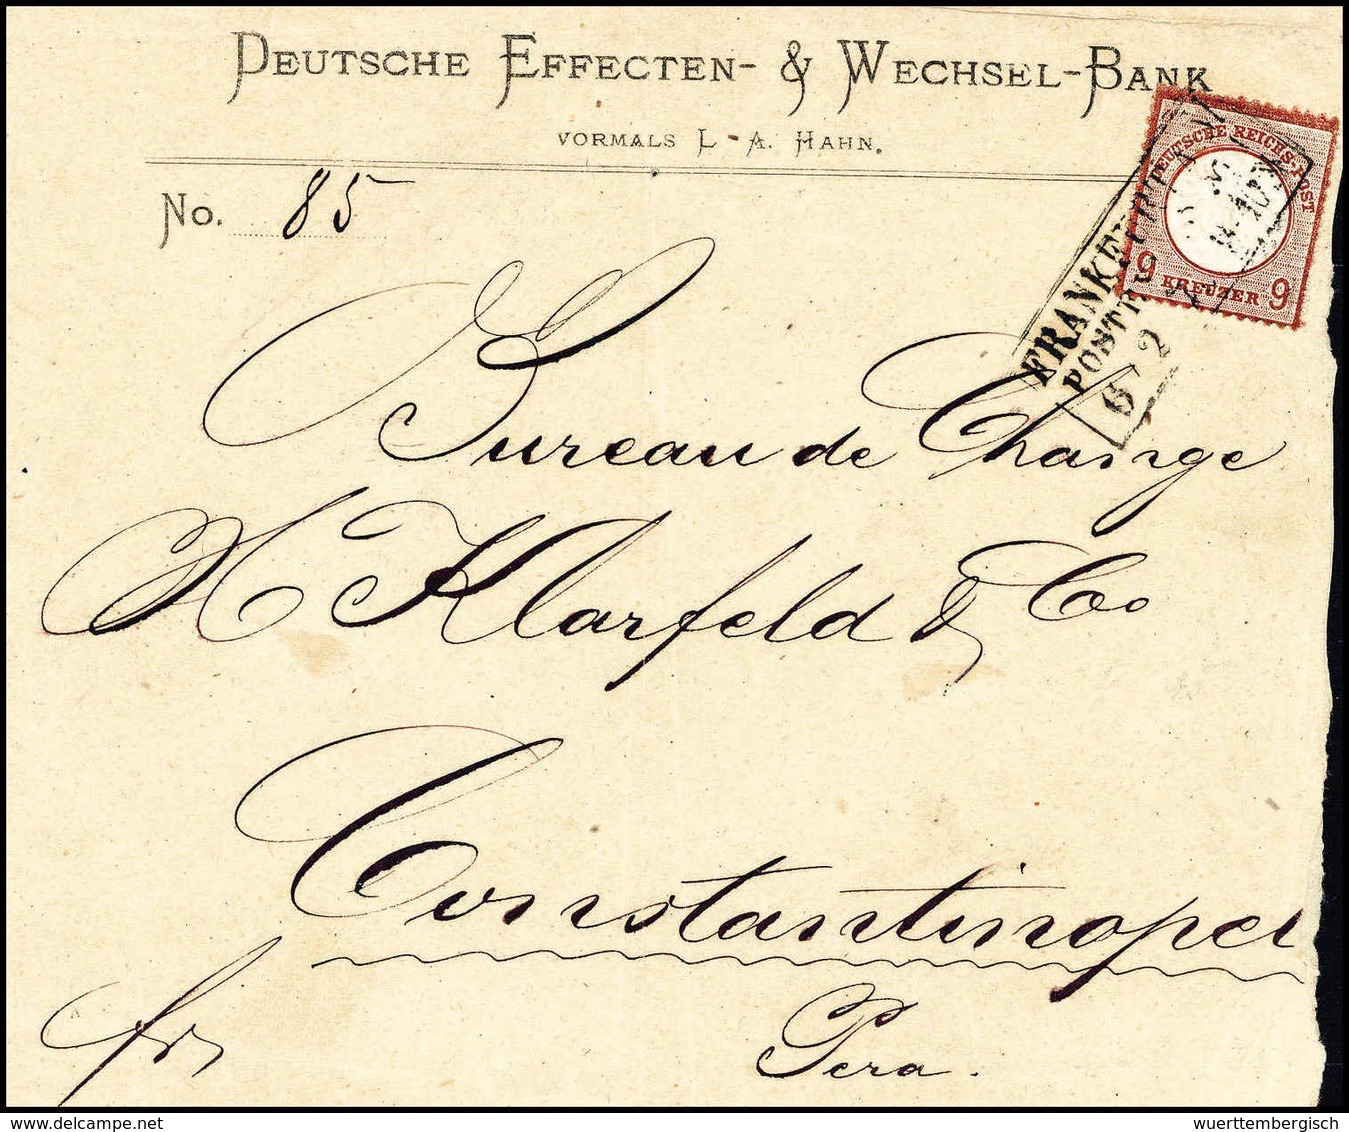 DEUTSCHE EFFECTEN- & WECHSEL-BANK
VORMALS L-A. HAHN.
No. 85
DEUTSCHE REICHS-POST
9 KREUZER 9
FRANKFURT A
POST
6 2
Bureau de Change
H Klarfeld & Co
Constantinopel
Pera.
fr
wuerttembergisch